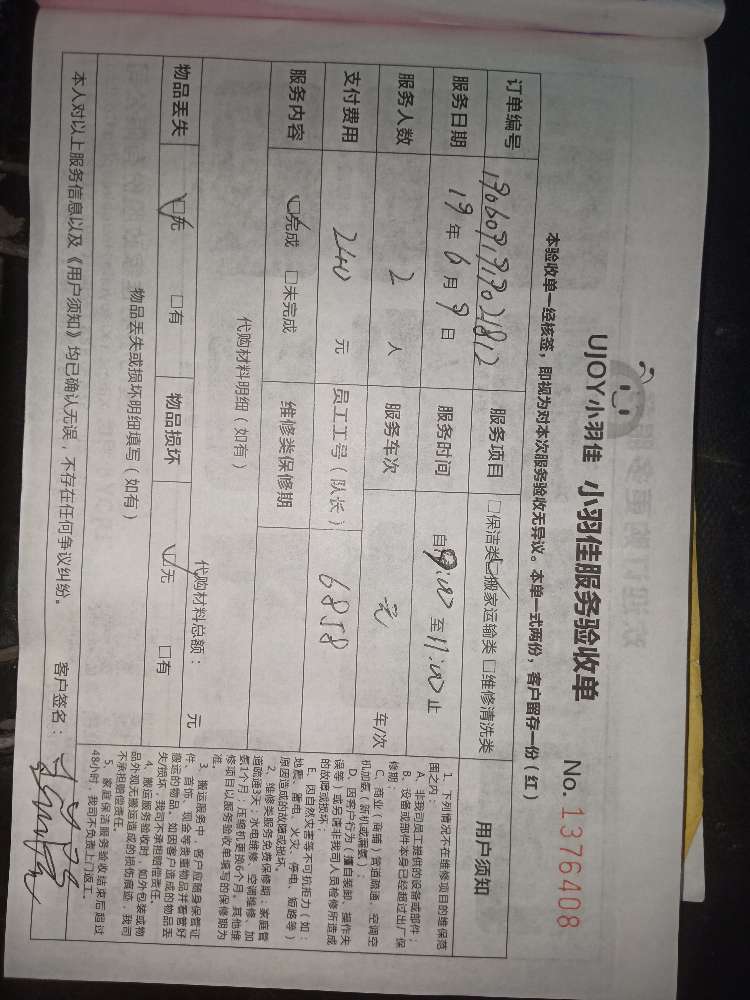 UJOY小羽佳 小羽佳服务验收单
No. 1376408
本验收单一经核签，即视为对本次服务验收无异议。本单一式两份，客户留存一份（红）
订单编号 服务项目 □保洁类 ☑搬家运输类 □维修清洗类
服务日期 19 年 6 月 9 日 服务时间 自 9:00 至 11:00 止
服务人数 2 人 服务车次 车/次
支付费用 240 元 员工工号（队长） 6858
服务内容 ☑完成 □未完成 维修类保修期
代购材料明细（如有）
代购材料总额： 元
物品丢失 ☑无 □有 物品损坏 ☑无 □有
物品丢失或损坏明细填写（如有）
本人对以上服务信息以及《用户须知》均已确认无误，不存在任何争议纠纷。 客户签名：
用户须知
1、下列情况不在维修项目的维保范
围之内：
A、非我司员工提供的设备或部件；
B、设备或部件本身已经超过出厂保
修期；
C、商业（商铺）管道疏通、空调空
机加氨（新机或漏氨）；
D、因客户行为（擅自装卸、操作失
误等）或另请非我司人员检修所造成
的故障或损坏
E、因自然灾害等不可抗拒力（如：
地震、雷电、火灾、停电、短路等）
原因造成的故障或损坏。
2、维修类服务免费保修期：家庭管
道疏通3天；水电维修、空调维修、加
氨1个月；压缩机更换6个月。其他维
修项目以服务验收单填写的保修期为
准。
3、搬运服务中，客户应随身保管证
件、首饰、现金等贵重物品并看管好
搬运的物品。如因客户造成的物品丢
失/损坏，我司不承担赔偿责任。
4、搬运服务验收时，如外包装或物
品外观无搬运造成的损伤痕迹，我司
不承担赔偿责任。
5、家庭保洁服务验收结束后超过
48小时，我司不负责上门返工。